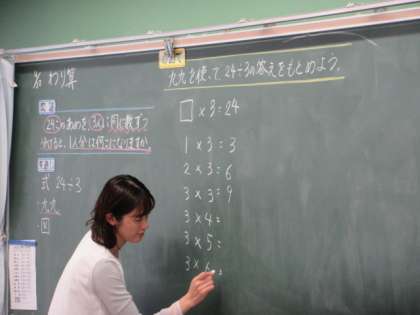 わり算
24このあめを、3人に同じ数ずつ
分けると、1人分は何こになりますか。
式 24÷3
・九九
・図
九九を使って、24÷3の答えをもとめよう。
□×3=24
1×3=3
2×3=6
3×3=9
3×4=
3×5=
3×6=